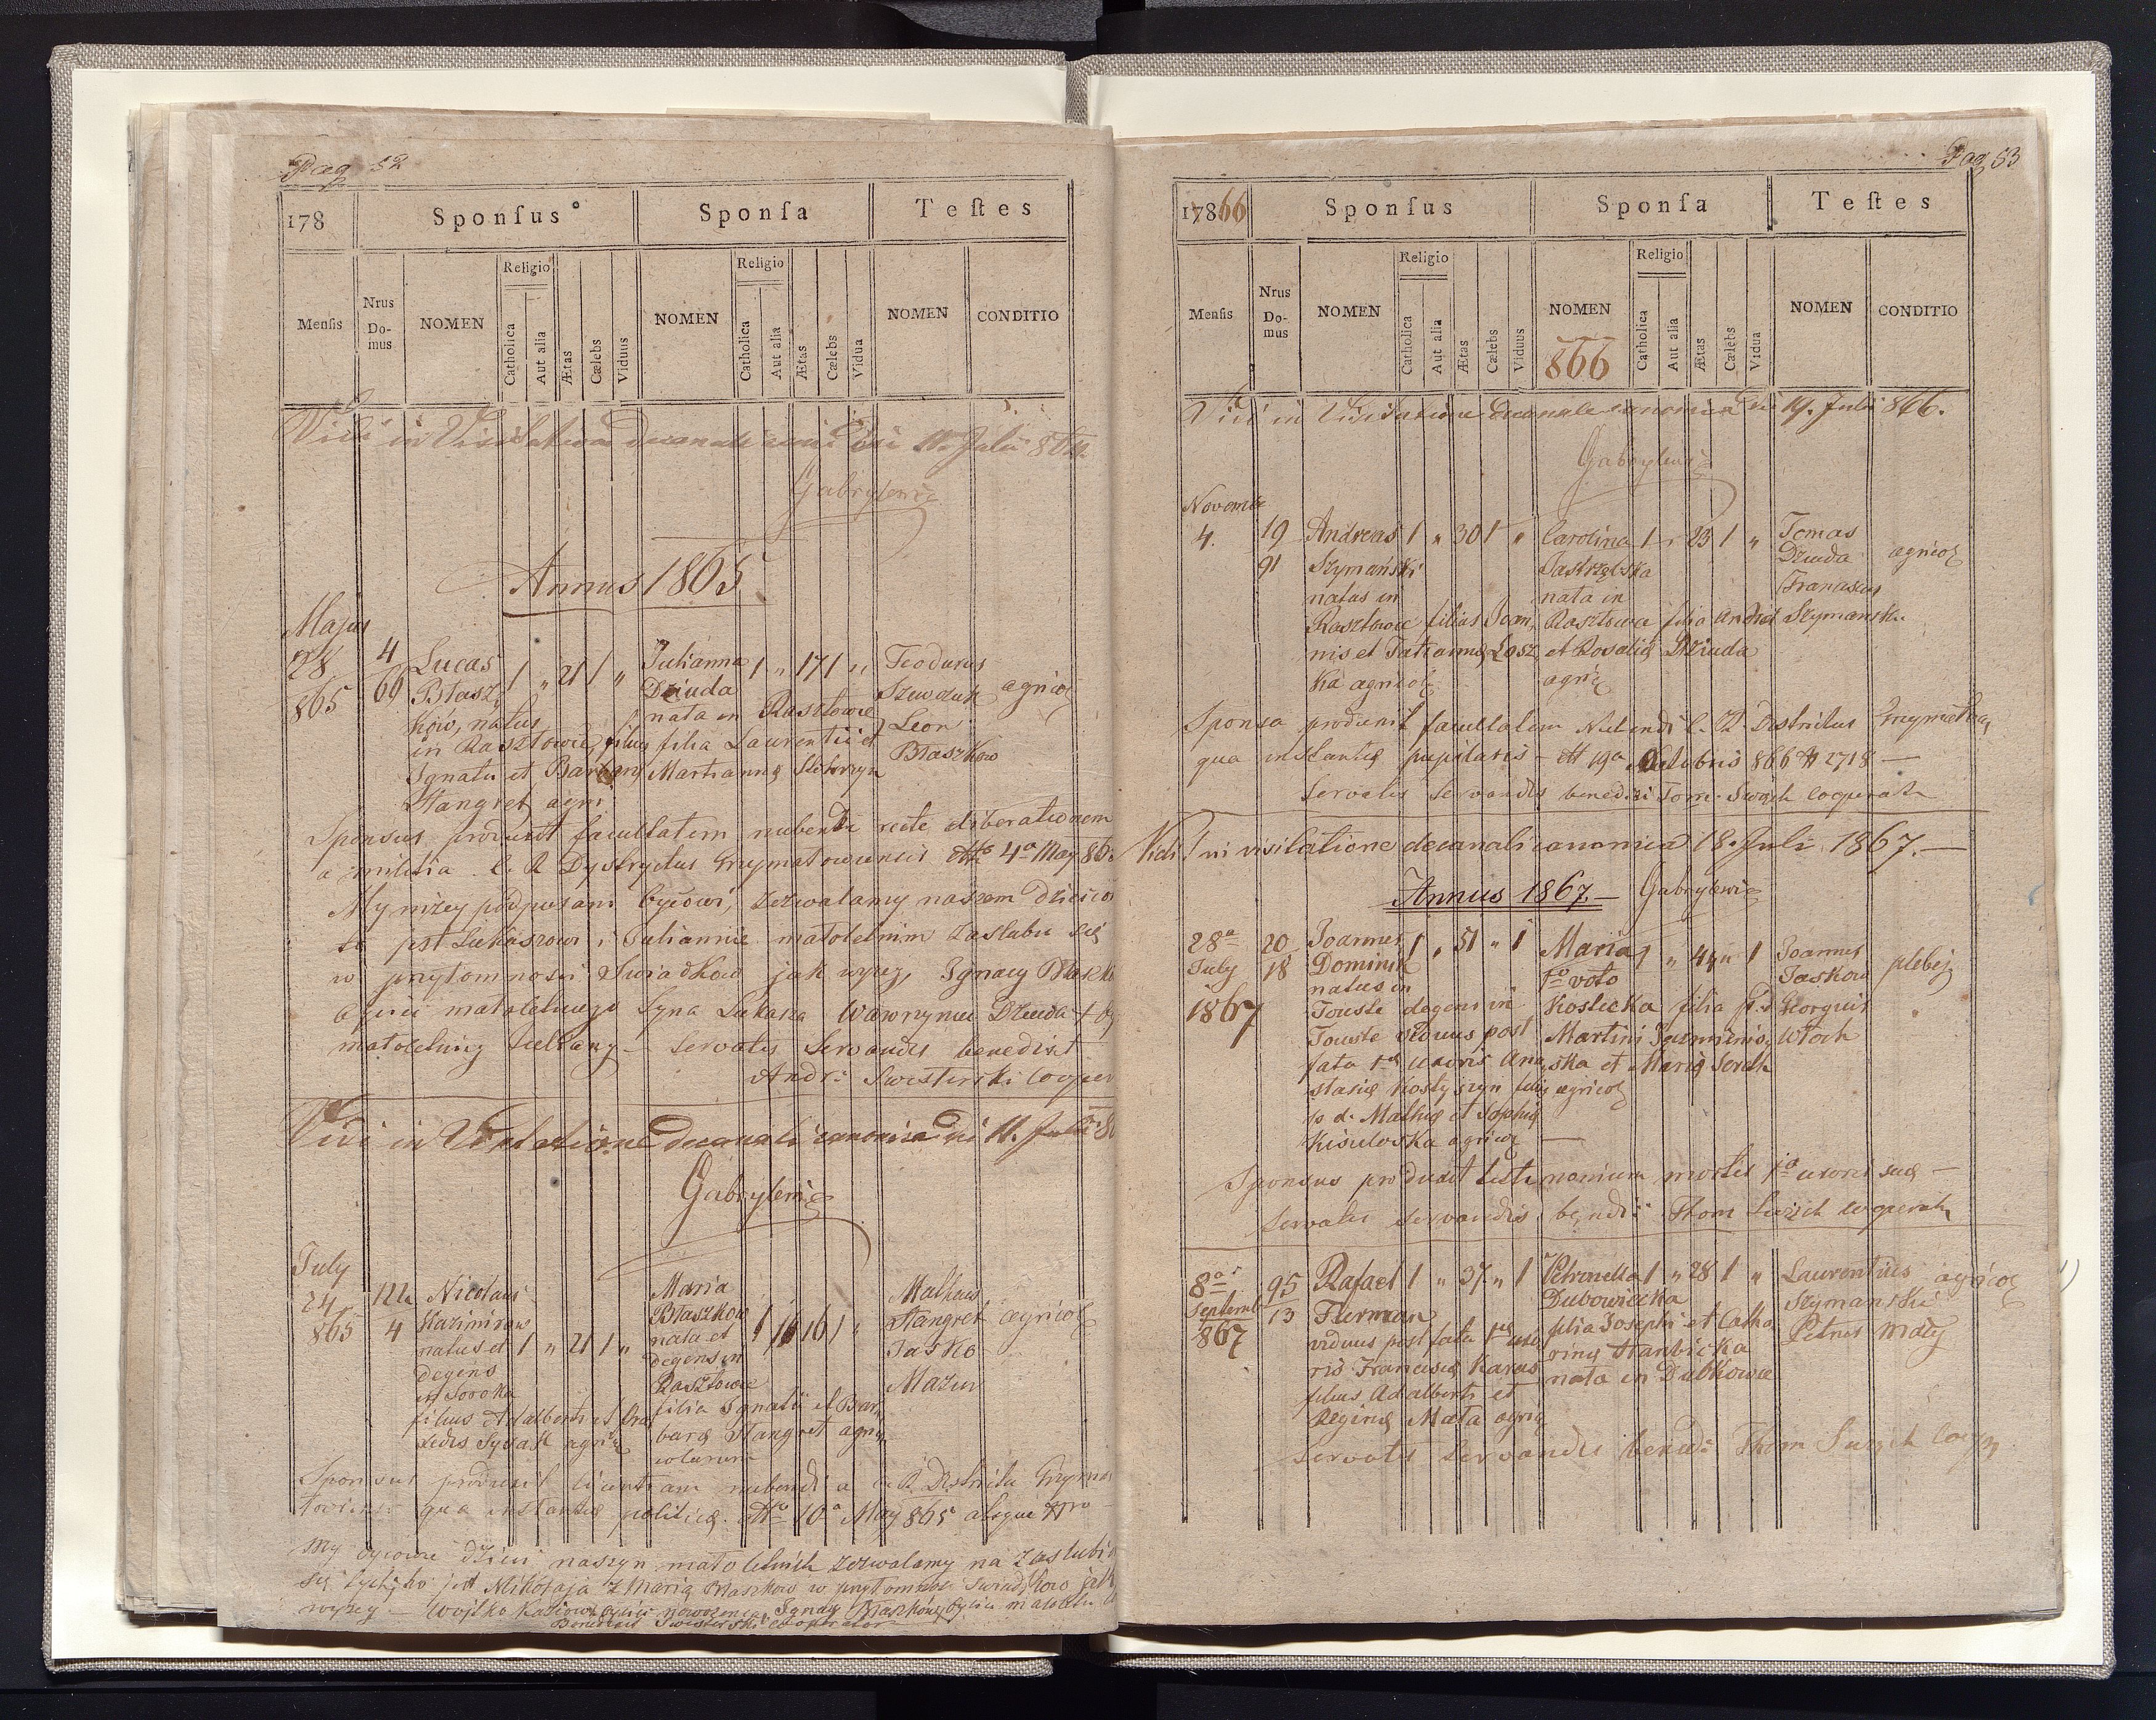 Pag 52
178
Sponſus
Sponſa
Teſtes
Menſis
Nrus Domus
NOMEN
Religio
Catholica
Aut alia
Ætas
Cælebs
Viduus
NOMEN
Religio
Catholica
Aut alia
Ætas
Cælebs
Vidua
NOMEN
CONDITIO
Vidi in Visitatione decanali die 11. Julii
Gabrylewicz
Annus 1865
Majus
28
865
4
66
Lucas 1 " 21 1 "
Błasz
ków, natus
in Rasztowce, filius
Ignatii et Barbarę
Hangret agri
Julianna 1 " 17 1 "
Dziuda
nata in Rasztowce
filia Laurentii et
Martiannę
Teodurus
Szewczuk
Leon
Błaszkow
agricol
Sponsus produxit facultatem nubendi recte deliberationem
a militia C. R. Dystryctus Grzymałowiensis dtto 4a May 865
My niżey podpisani oycowi, zezwalamy naszem dzieciom
to jest Łukaszowi i Juliannie małoletnim zaslubić się
w przytomności Swiadkow jak wyżey, Ignacy Błaszków
oyciec małoletniego Syna Łukasza Wawrzyniec Dziuda +
małoletniey Julianny – Servatis Servandis benedixit
Andr: Swisterski Cooper
Vidi in Visitatione decanali canonica die 11. Julii
Gabrylewicz
July
24
865
122
4
Nicolaus
Kazimirow
natus et 1 " 21 1 "
degens
in Soroka
filius Adalberti et
Sydak agric
Maria
Błaszkow
nata et
degens in
Rasztowce
filia Ignatii et Bar
barę Hangret agri
colarum
1 16 1
Matheus
Hangret
Jasko
Mazur
agricol
Sponsus produxit licentiam nubendi a C. R. Districtu Grzyma
towiensi qua instantię politicę dtto 10a May 865 absque Nro
My oycowie dzieci naszyn małoletnich zezwalamy na zaslubi
się tychże to jest Mikołaja z Marią Błaszkow w przytomności swiadkow jak
wyzey – Woytko Kaziow oyciec nowożenca, Ignacy Błaszków oyciec małoletn
Benedixit Swisterski cooperator
Pag 53
17866
Sponſus
Sponſa
Teſtes
Menſis
Nrus Domus
NOMEN
Religio
Catholica
Aut alia
Ætas
Cælebs
Viduus
NOMEN
866
Religio
Catholica
Aut alia
Ætas
Cælebs
Vidua
NOMEN
CONDITIO
Vidi in Visitatione decanali canonica die 19. Julii 866.
Gabrylewicz
Novembr
4.
19
91
Andreas 1 " 30 1 "
Szymański
natus in
Rasztowce filius Joan
nis et Tatiannę Łosz
ka agricol
Carolina 1 " 23 1 "
Jastrzębska
nata in
Rasztowce filia Andreę
et Rosalię Dziuda
agric
Tomas
Dziuda
Franciscus
Szymanski
agricol
Sponsa produxit facultatem Nubendi C. R. Districtus Grzymałow
qua instantię pupilaris – dtt 19a Octobris 866 N 2718 –
Servatis Servandis benedixi Tom: Swzych Cooperatr
Vidi in visitatione decanali canonica 18. Julii 1867. –
Annus 1867. – Gabrylewicz
28a
July
1867
20
18
Joannes 1 " 51 " 1
Dominik
natus in
Touste degens in
Touste viduus post
fata 1ę uxoris Ana
stasię Kostyszyn filius
p. d. Mathię et Sophię
Kisielowska agricol
Maria 1 " 44 " 1
1o voto
Koslecka filia p. d.
Martini Jaźminow
ska et Marię
agricol
Joannes
Jaskow
Georgius
Włoch
plebej
Sponsus produxit testimonium mortis 1a uxoris suę –
Servatis servandis bened: Thom Swzych cooperatr
8a
Septemb
867
95
13
Rafael 1 " 37 " 1
Furman
viduus post fata 1ę uxo
ris Franciscę Karas
filius Adalberti et
Reginę Mata agric
Petronella 1 " 28 1 "
Dubowiecka
filia Josephi et Catha
rinę Harbicka
nata in Dubkowce
Laurentius
Szymanski
Petrus Mały
agricol
Servatis Servandis bened: Thom Swzych Coopr